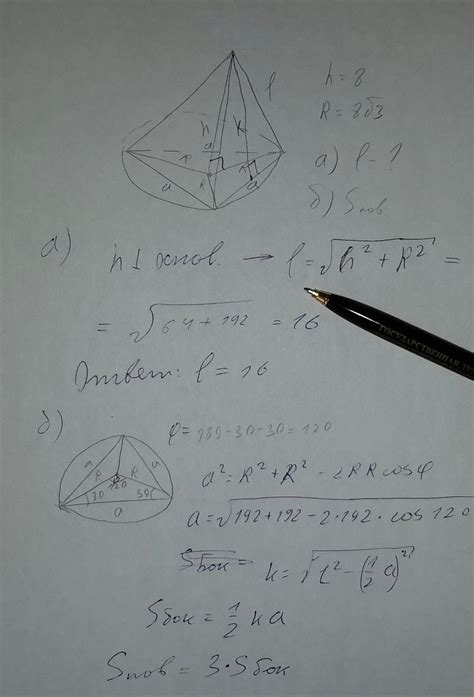 h = 8
R = 8√3
а) l - ?
б) Sпов
l
h
k
a
a
R
а)
h ⊥ хпов. → l = √h² + R² =
= √64 + 192 = 16
Ответ: l = 16
б)
φ = 180 - 30 - 30 = 120
a
a
R
R
120
30
30
a
a² = R² + R² - 2RR cos φ
a = √192 + 192 - 2·192 · cos 120
Sбок =
k = √l² - (½ a)²
Sбок = ½ k a
Sпов = 3 · Sбок
ГОСУДАРСТВЕННАЯ